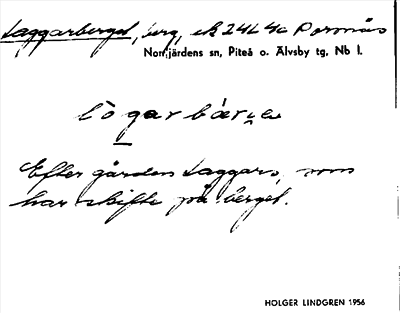 Laggarberget, berg, ek 24L4c Pornäs
Norrfjärdens sn, Piteå o. Älvsby tg, Nb l.
Efter gården Laggars, som
har skifte på berget.
HOLGER LINDGREN 1956